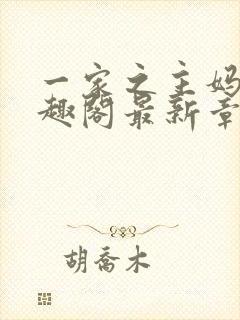 一家之主妈
趣阁最新章
胡乔木